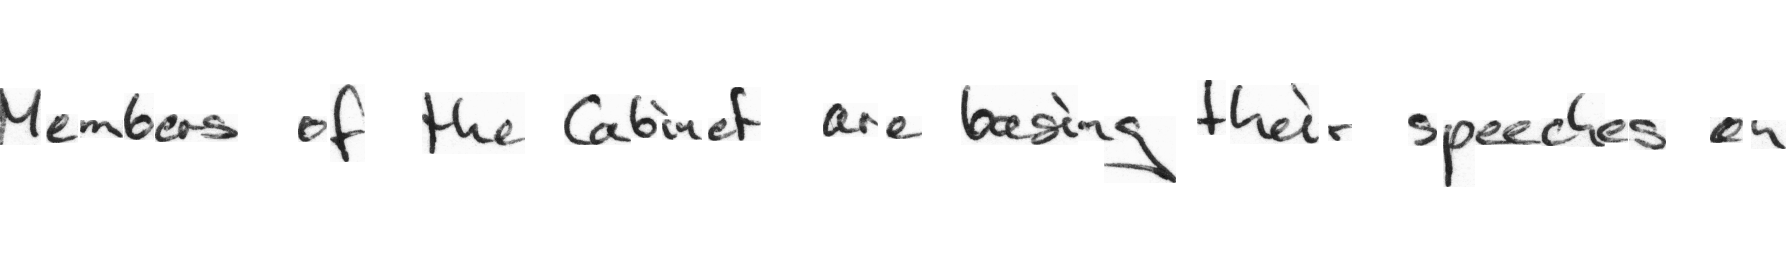 Members of the Cabinet are basing their speeches on